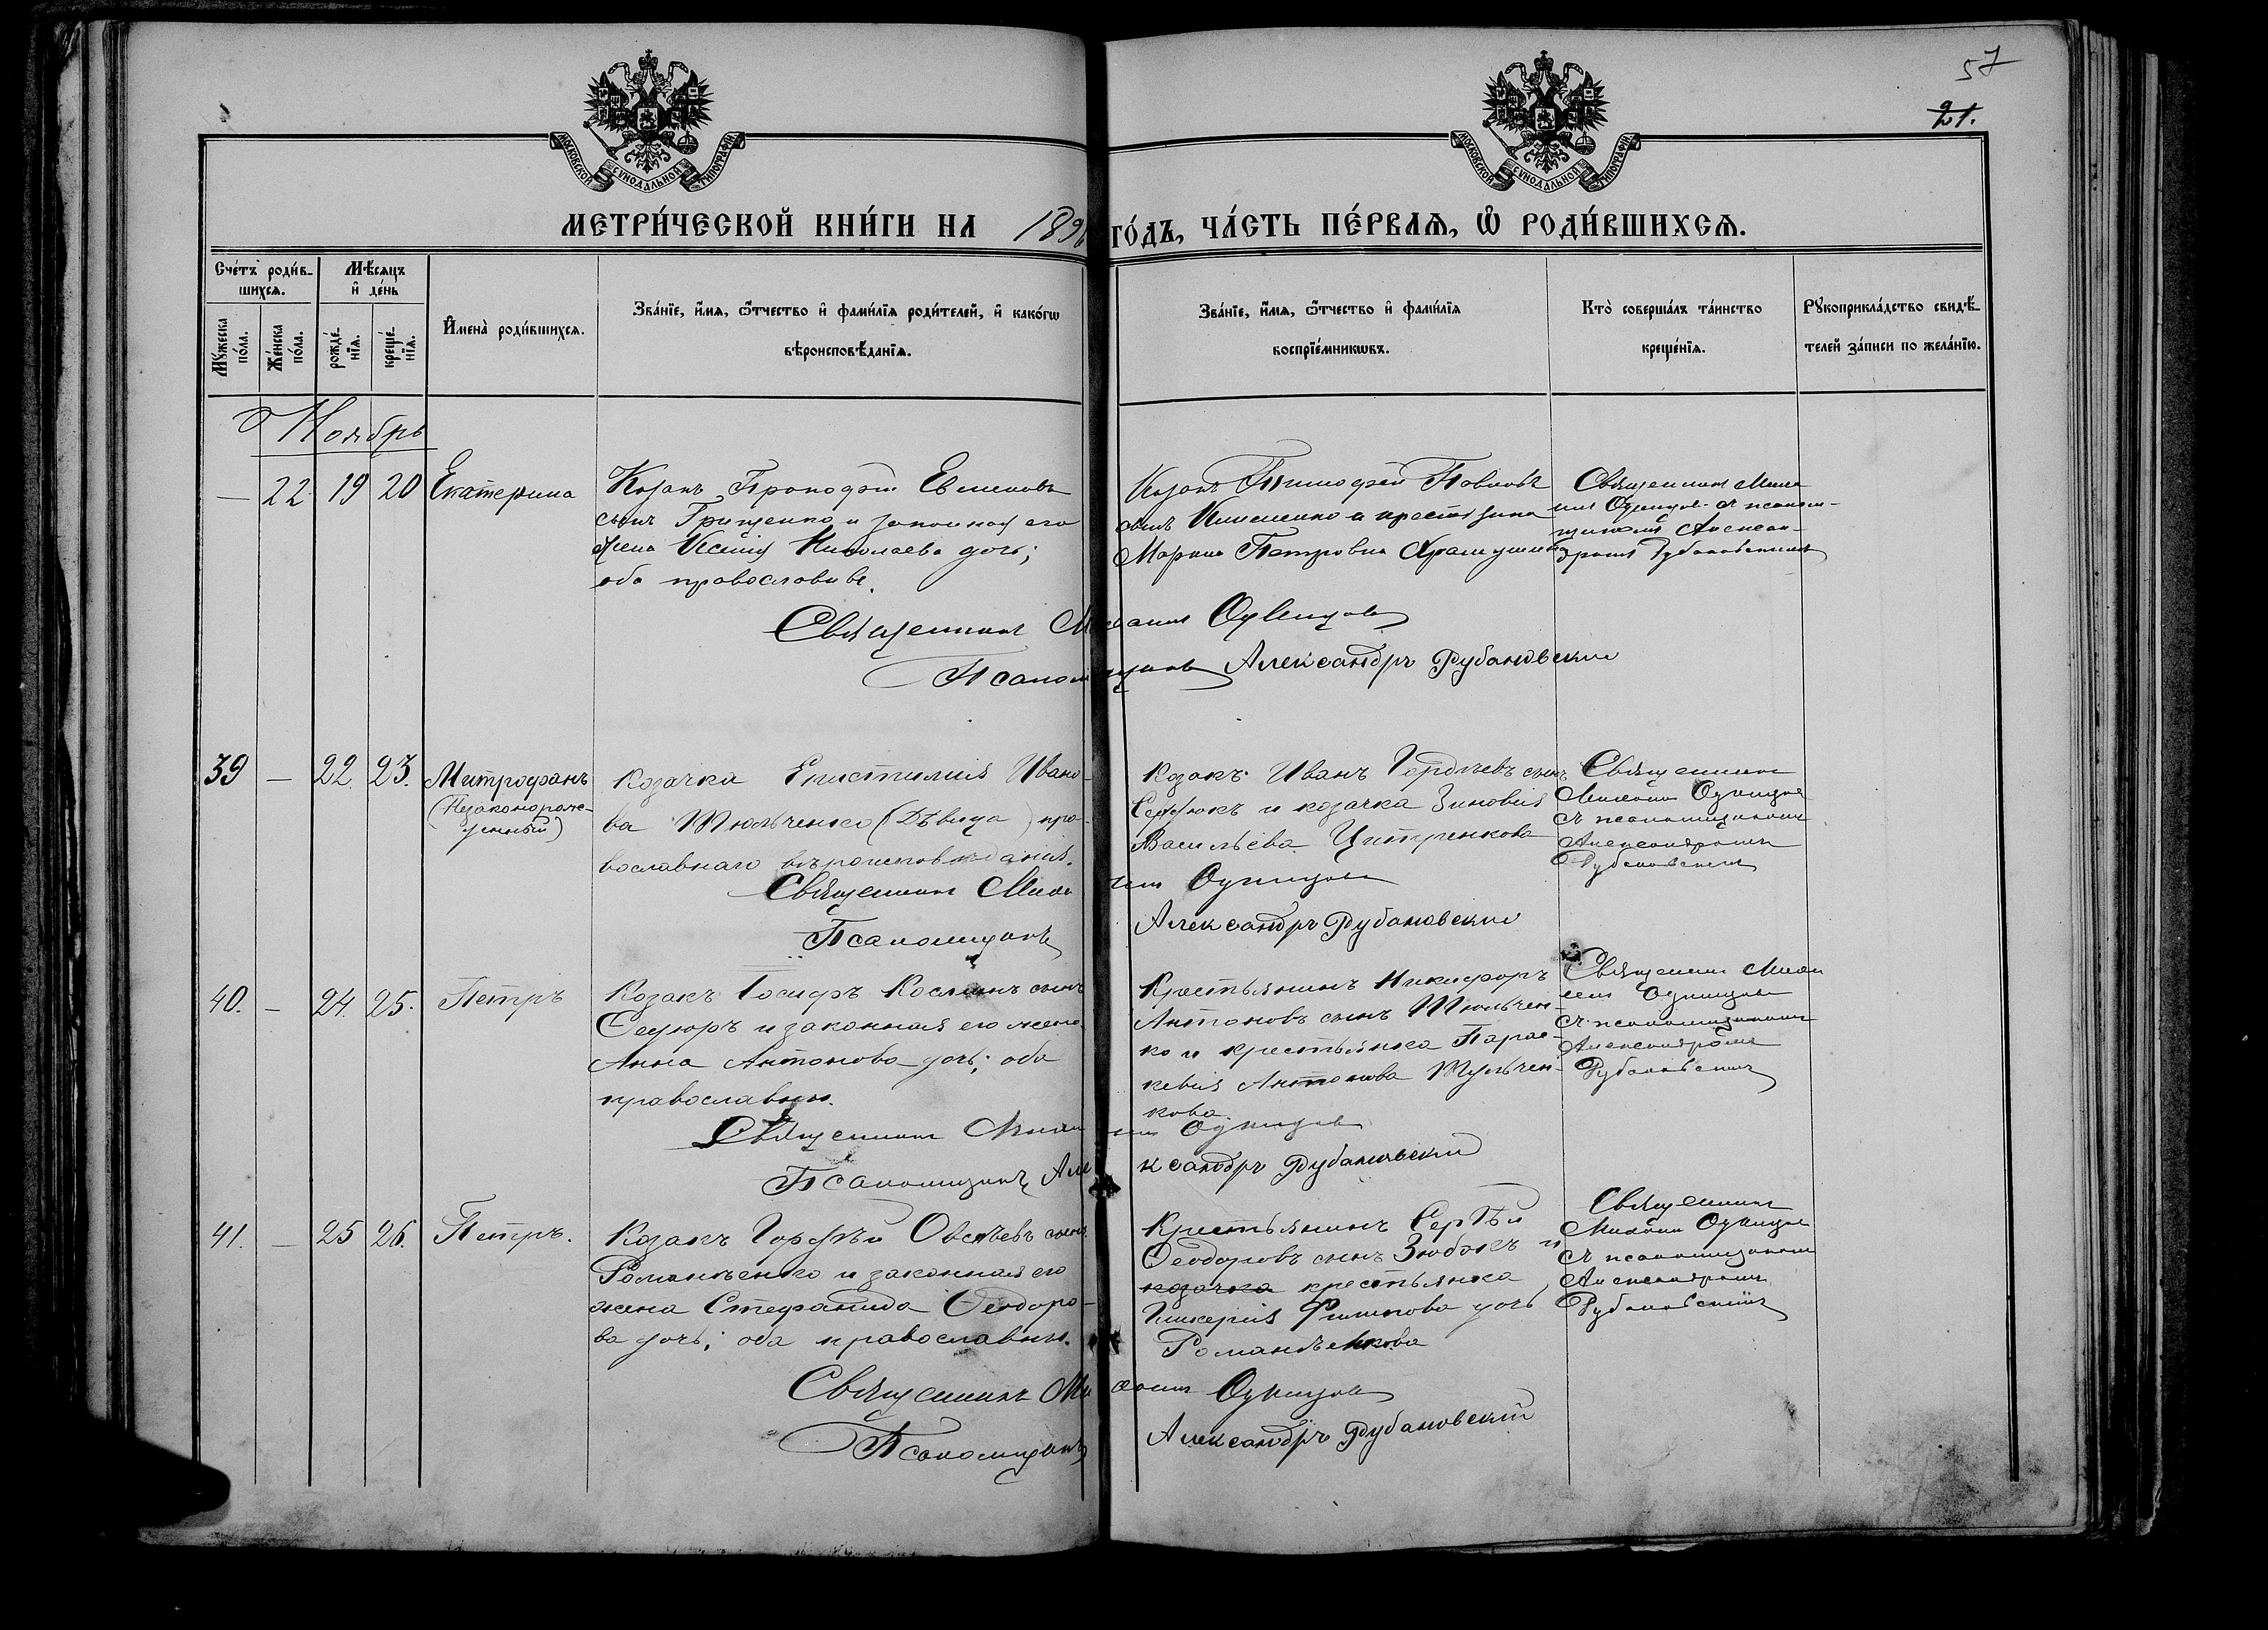 57
21.
МОСКОВСКОЙ СѴНОДАЛЬНОЙ ТИПОГРАФІИ
МОСКОВСКОЙ СѴНОДАЛЬНОЙ ТИПОГРАФІИ
МЕТРИ́ЧЕСКОЙ КНИ́ГИ НА 189
ГО́ДЪ, ЧА́СТЬ ПЕ́РВАѦ, Ѽ РОДИ́ВШИХСѦ.
Сче́тъ роди́в-
шихсѧ.
Мѣ́сѧцъ
и҆ де́нь
Мꙋ́жеска
по́ла.
Же́нска
по́ла.
рожде́-
нїѧ.
креще́-
нїѧ.
И҆мена̀ роди́вшихсѧ.
Зва́нїе, и҆́мѧ, ѻ҆́тчество и҆ фами́лїѧ роди́телей, и҆ како́гѡ
вѣроисповѣ́данїѧ.
Зва́нїе, и҆́мѧ, ѻ҆́тчество и҆ фами́лїѧ
воспрїе́мникѡвъ.
Кто̀ соверша́лъ та́инство
креще́нїѧ.
Рꙋкоприкла́дство свидѣ́-
телей за́писи по жела́нїю.
Ноябрь
— 22 19 20 Екатерина
Козакъ Прокофій
сынъ Грищенко и законная его
жена Ксенія Николаева дочь;
оба православные.
Козакъ Тимофей Павловъ
сынъ и крестьянка
Марина Петровна
Священник
Одинцов с псалом-
щиком Алексан-
дром Рубановским
Священник Михаил Одинцов
Псаломщикъ Александръ Рубановскій
39 — 22 23. Митрофанъ
(Незаконорож-
денный)
Козачка Епистимия Ивано-
ва Тюльченко (Дѣвица) пра-
вославнаго вѣроисповѣданія.
Козакъ Иванъ Гордѣевъ сынъ
Сердюкъ и козачка Зиновія
Васильева
Священник
Михаил Одинцов
с псаломщиком
Александром
Рубановским
Священник Михаил Одинцов
Псаломщикъ Александръ Рубановскій
40. — 24. 25. Петръ
Козакъ Іосифъ Косминъ сынъ
и законная его жена
Анна Антонова дочь; оба
православны.
Крестьянинъ Никифоръ
Антоновъ сынъ Тюльчен-
ко и крестьянка Парас-
кевія Антонова Тульчен-
кова.
Священник Михаил
Одинцов
с псаломщиком
Александром
Рубановским
Священник Михаил Одинцов
Псаломщикъ Александръ Рубановскій
41. — 25 26. Петръ.
Козакъ Гордѣй Овсѣевъ сынъ
Романченко и законная его
жена Стефанида Ѳеодоро-
ва дочь; оба православны.
Крестьянинъ Сергѣй
Ѳеодоровъ сынъ и
козачка крестьянка
Гликерія Филипова дочь
Романченкова
Священник
Михаил Одинцов
с псаломщиком
Александром
Рубановским
Священникъ Михаил Одинцов
Псаломщикъ Александръ Рубановскій